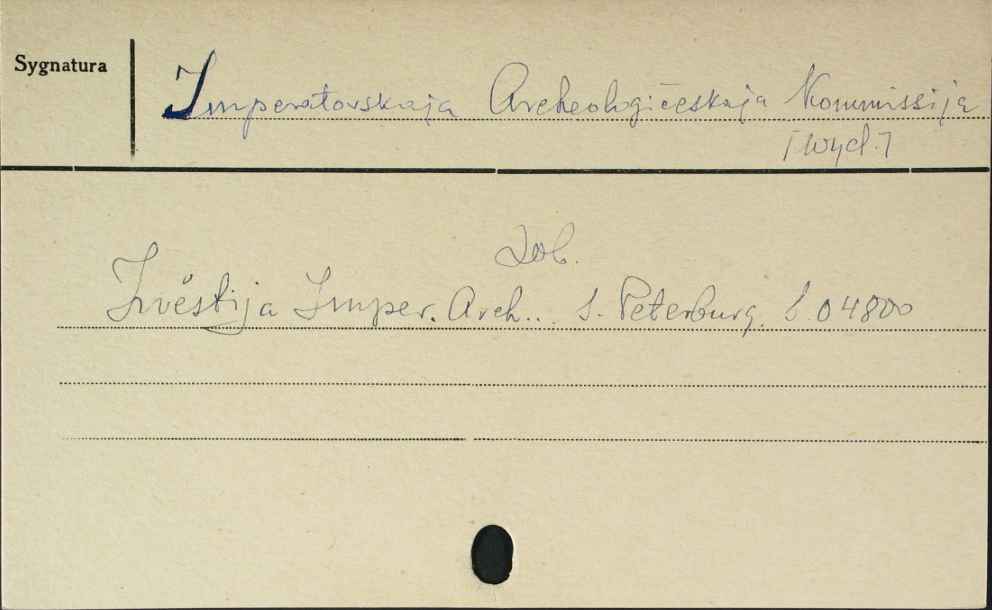 Sygnatura
Imperatorskaja Archeologičeskaja Kommissija
[wyd.]
Zob.
Izvěstija Imper. Arch... S. Peterburg. S.04800